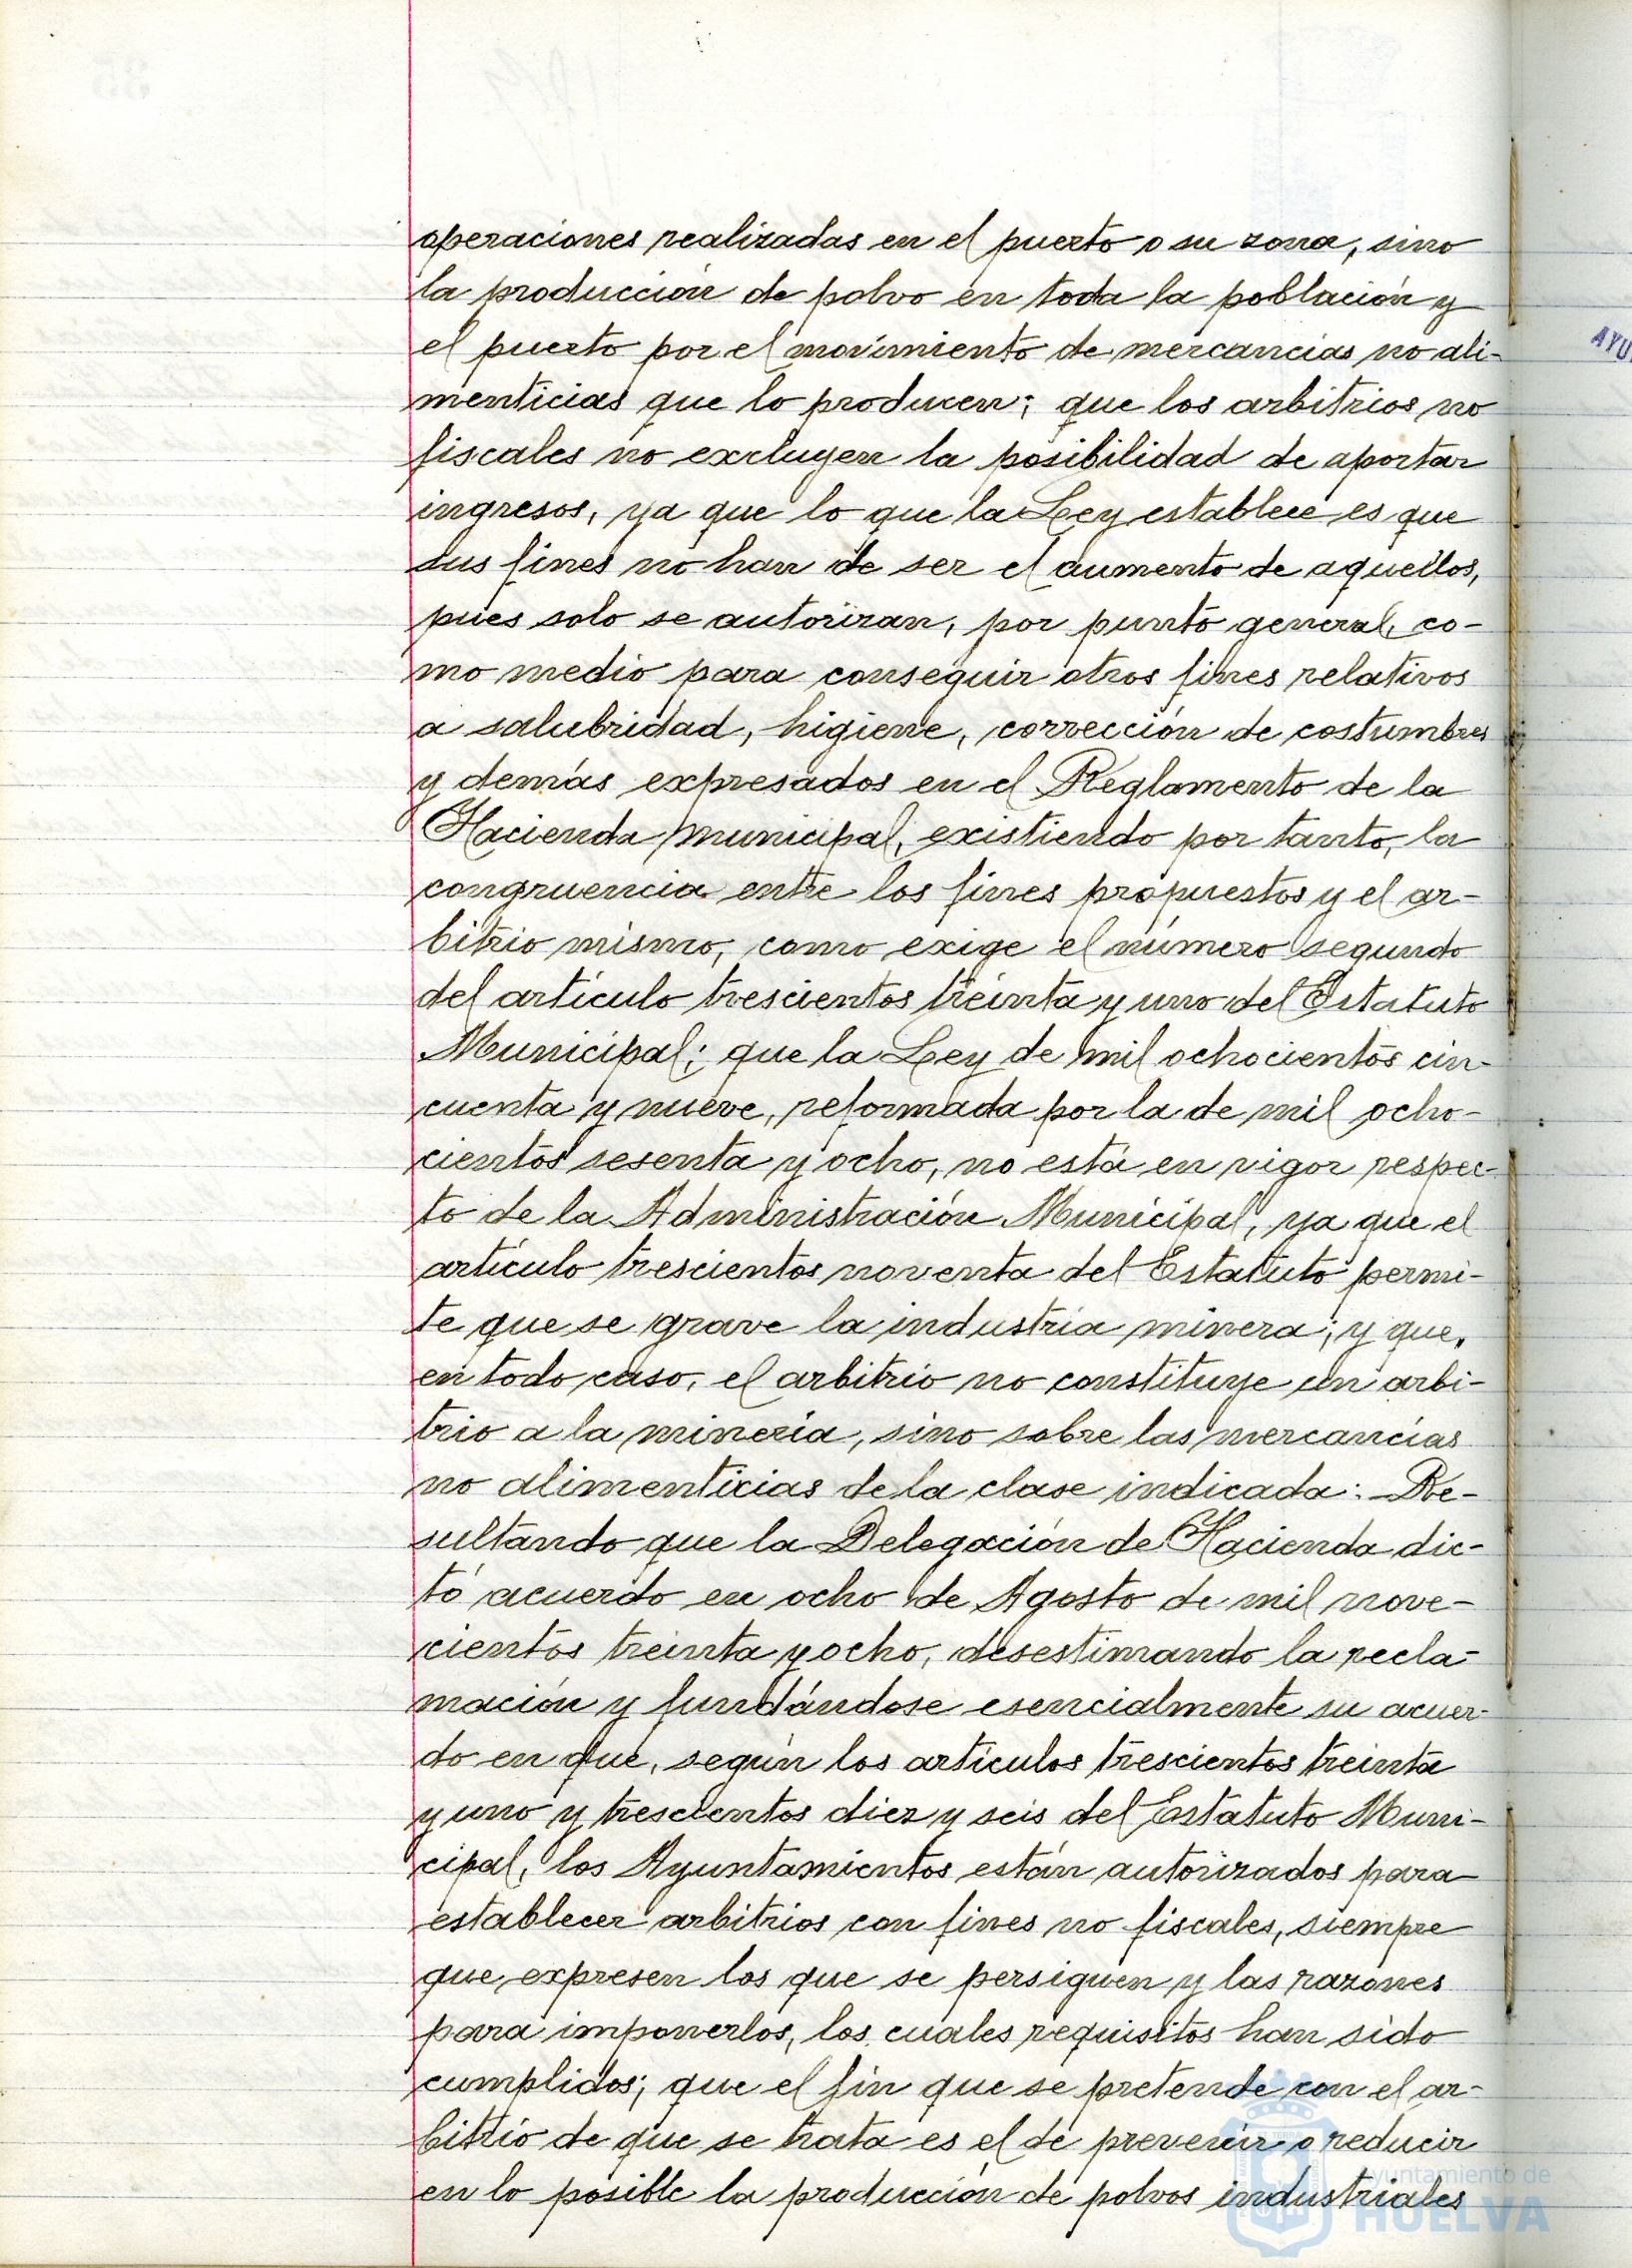 operaciones realizadas en el puerto o su zona, sino
la producción de polvo en toda la población y
el puerto por el movimiento de mercancias no ali-
menticias que lo producen; que los arbitrios no
fiscales no excluyen la posibilidad de aportar
ingresos, ya que lo que la Ley establece es que
sus fines no han de ser el aumento de aquellos,
pues solo se autorizan, por punto general, co-
mo medio para conseguir otros fines relativos
a salubridad, higiene, corrección de costumbres
y demás expresados en el Reglamento de la
Hacienda municipal, existiendo por tanto, la
congruencia entre los fines propuestos y el ar-
bitrio mismo, como exige el número segundo
del artículo trescientos treinta y uno del Estatuto
Municipal; que la Ley de mil ochocientos cin-
cuenta y nueve, reformada por la de mil ocho-
cientos sesenta y ocho, no está en vigor respec-
to de la Administración Municipal, ya que el
artículo trescientos noventa del Estatuto permi-
te que se grave la industria minera; y que,
en todo caso, el arbitrio no constituye un arbi-
trio a la minería, sino sobre las mercancías
no alimenticias de la clase indicada: Re-
sultando que la Delegación de Hacienda dic-
tó acuerdo en ocho de Agosto de mil nove-
cientos treinta y ocho, desestimando la recla-
mación y fundándose esencialmente su acuer-
do en que, según los artículos trescientos treinta
y uno y trescientos diez y seis del Estatuto Muni-
cipal, los Ayuntamientos están autorizados para
establecer arbitrios con fines no fiscales, siempre
que expresen los que se persiguen y las razones
para imponerlos, los cuales requisitos han sido
cumplidos; que el fin que se pretende con el ar-
bitrio de que se trata es el de prevenir o reducir
en lo posible la producción de polvos industriales
AYU
Ayuntamiento de
HUELVA